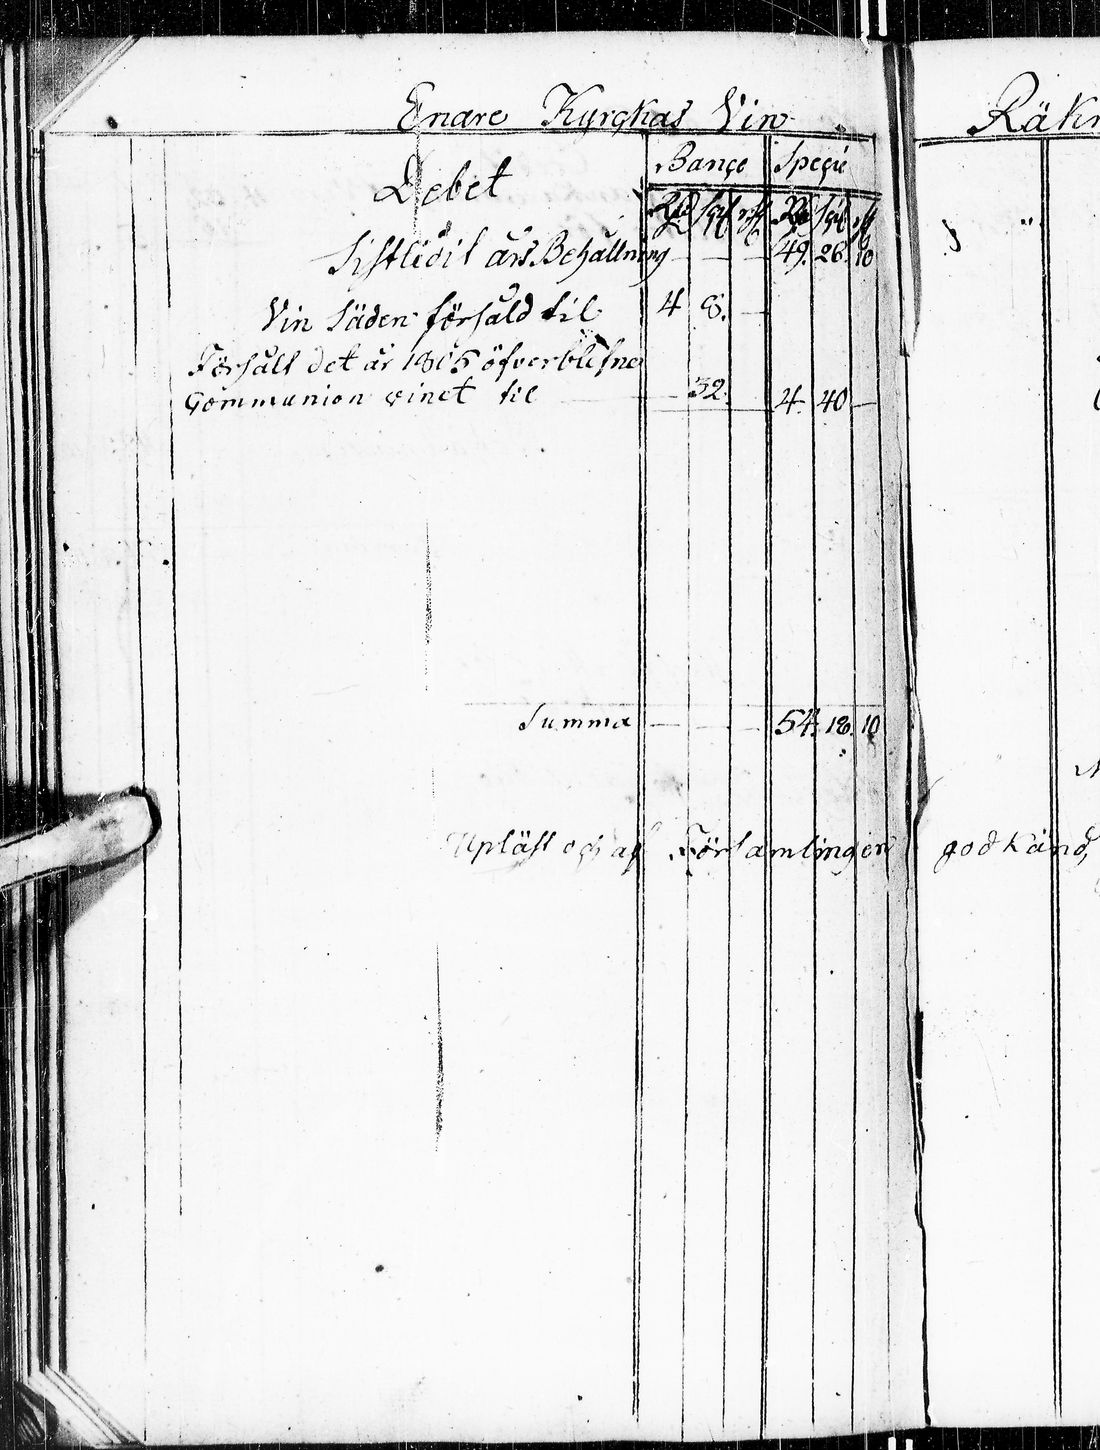 Enare Kyrckas Vin Räkn
Debet Banco Specie
Rd sk rst Rd sk rst
Sistledit års Behållning — — — 49. 26. 10
Vin Säden försåld til 4 8. —
Försålt det år 1805 öfverblefne
Communion vinet til 32. 4. 40 —
Summa — — — 54. 18. 10
Upläst och af Församlingen godkänd,